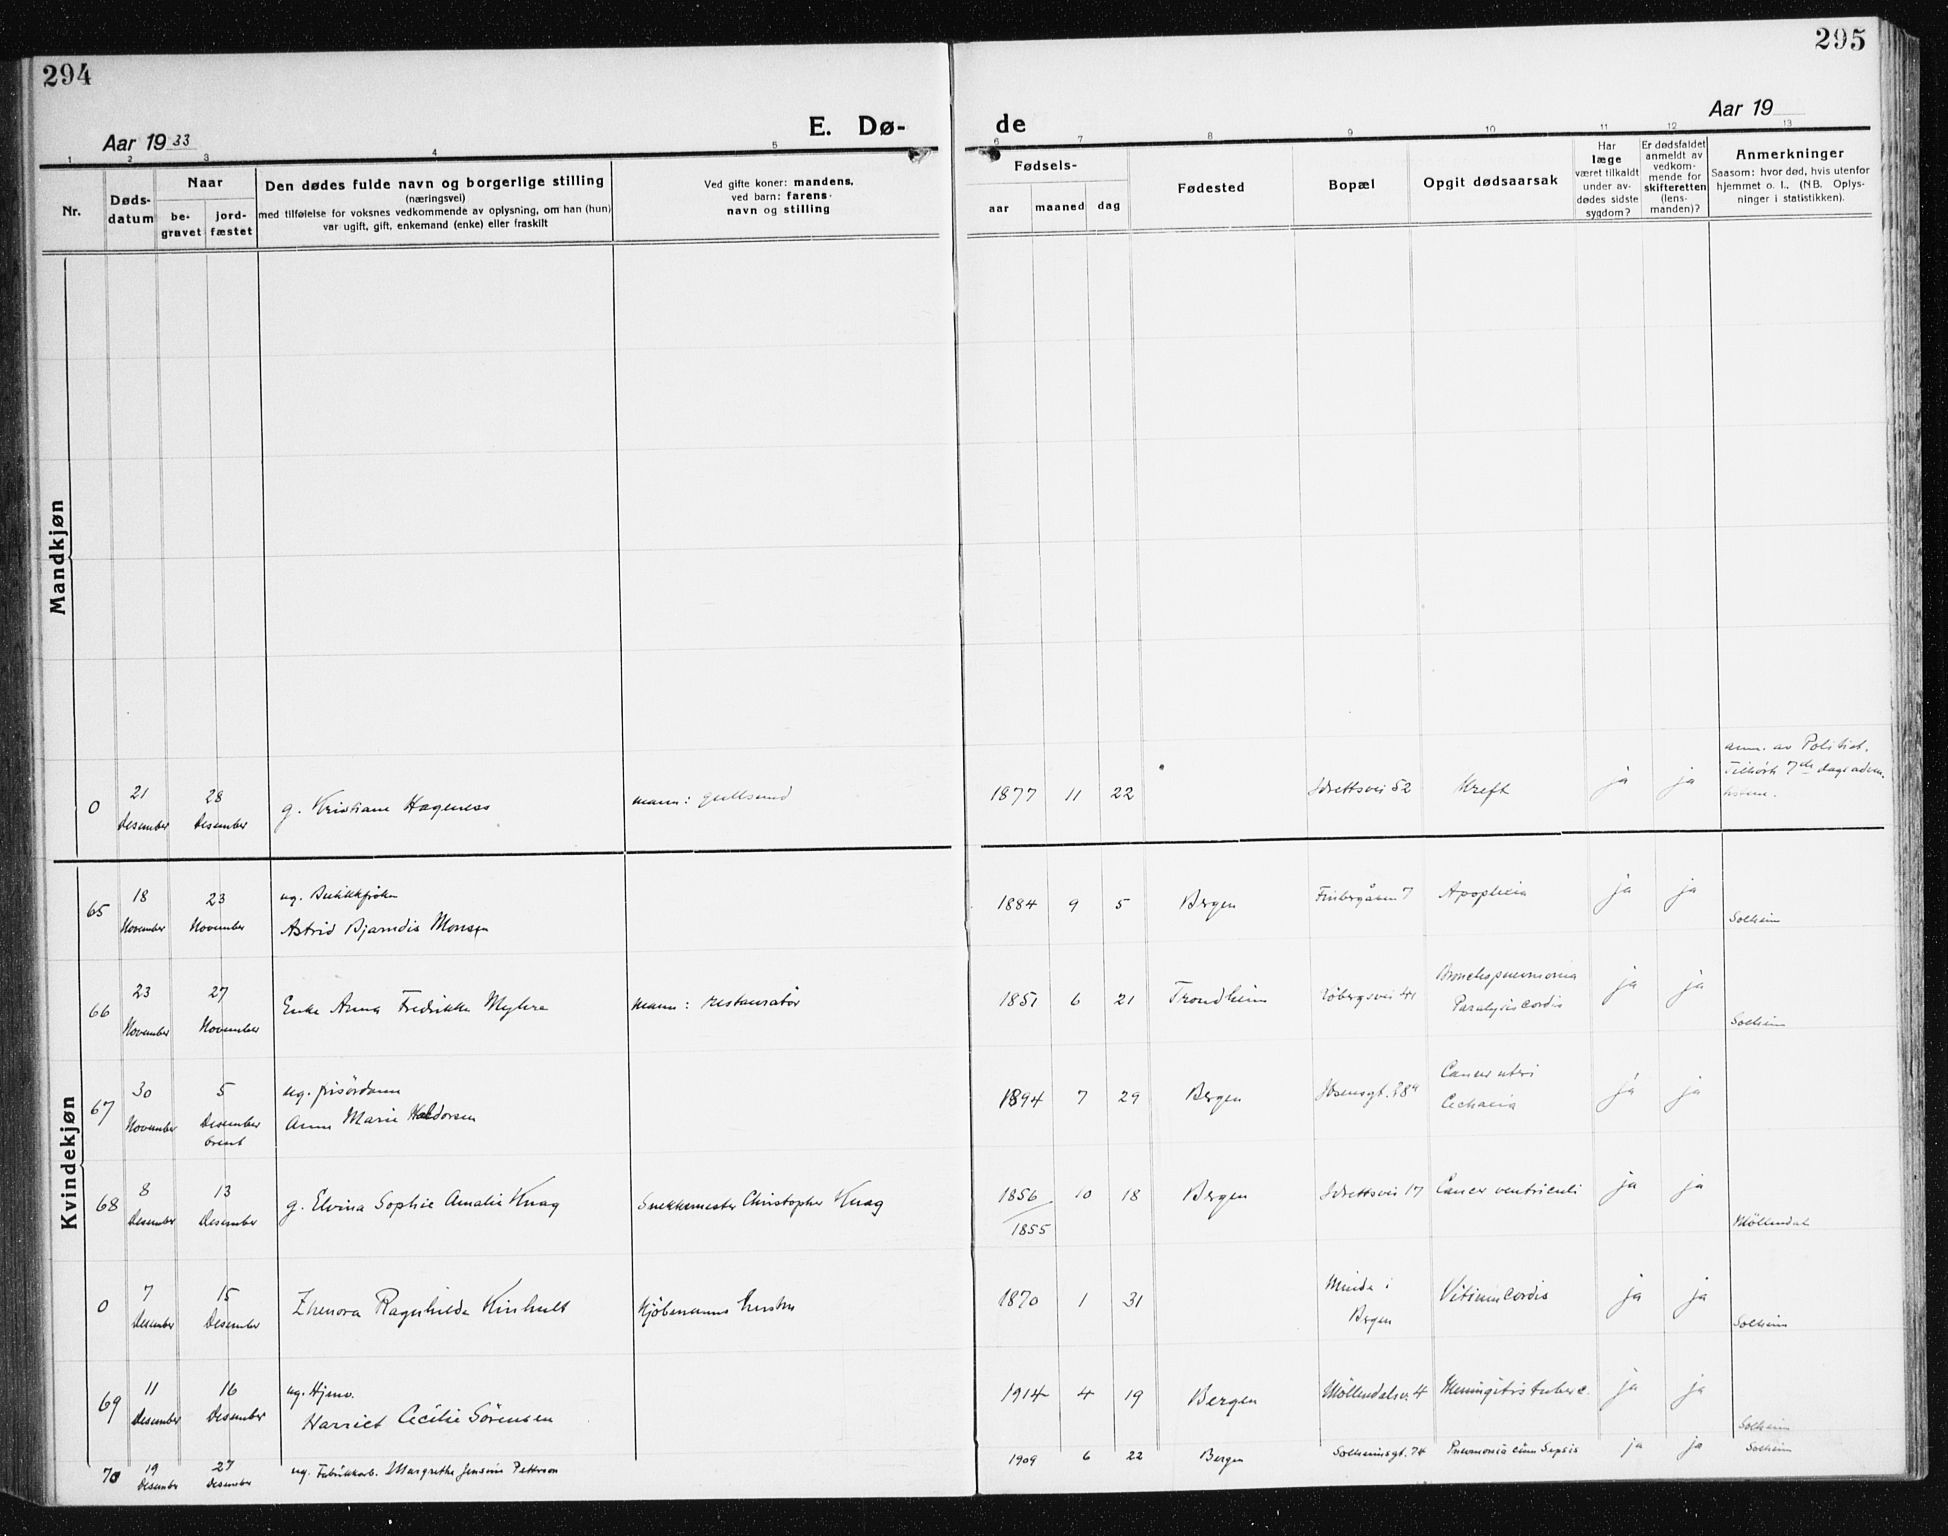 294
295
Aar 1933
E. Dø-
de
Aar 19
1 2 3 4 5 6 7 8 9 10 11 12 13
Nr.
Døds-
datum
Naar
be-
gravet
jord-
fæstet
Den dødes fulde navn og borgerlige stilling
(næringsvei)
med tilføielse for voksnes vedkommende av oplysning, om han (hun)
var ugift, gift, enkemand (enke) eller fraskilt
Ved gifte koner: mandens,
ved barn: farens
navn og stilling
Fødsels-
aar
maaned
dag
Fødested
Bopæl
Opgit dødsaarsak
Har
læge
været tilkaldt
under av-
dødes sidste
sygdom?
Er dødsfaldet
anmeldt av
vedkom-
mende for
skifteretten
(lens-
manden)?
Anmerkninger
Saasom: hvor død, hvis utenfor
hjemmet o. l., (NB. Oplys-
ninger i statistikken).
Mandkjøn
Kvindekjøn
0 21 Desember 28 Desember g. Kristiane Hageness mann: 1877 11 22 Idrettsvei 52 Kreft ja ja
anm. av Politiet.
Tilhørte 7de dags adven.
65 18 November 23 November ug.
Astrid Bjarndis Monsen 1884 9 5 Bergen 7 Apoplexia ja ja Solheim
66 23 November 27 November Enke Anna Fredrikke Myhre mann: restauratør 1851 6 21 Trondheim 41 Bronchopneumonia
Paralysis cordis ja ja Solheim
67 30 November 5 Desember brent ug. frisørdame
Anna Marie Haldorsen 1894 7 29 Bergen Ibsensgt. Cancer uteri
Cachexia ja ja
68 8 Desember 13 Desember g. Elvina Sophie Amalie Knag Snekkermester Christopher Knag 1856 10 18 Bergen Idrettsvei 17 Cancer ventriculi ja ja
1855 Møllendal
0 7 Desember 15 Desember Ragnhilda Kinhult Kjøbmanns hustru 1870 1 31 Minde i
Bergen Vitium cordis ja ja Solheim
69 11 Desember 16 Desember ug. Hjemv.
Harriet Cecilie Sørensen 1914 4 19 Bergen Møllendalsv. 4 Meningitis tuberc. ja ja Solheim
70 19 Desember 27 Desember ug. Fabrikkarb. Margrethe Jensine Petterson 1909 6 22 Bergen Solheimsgt. 74 Pneumonia cum Sepsis ja ja Solheim